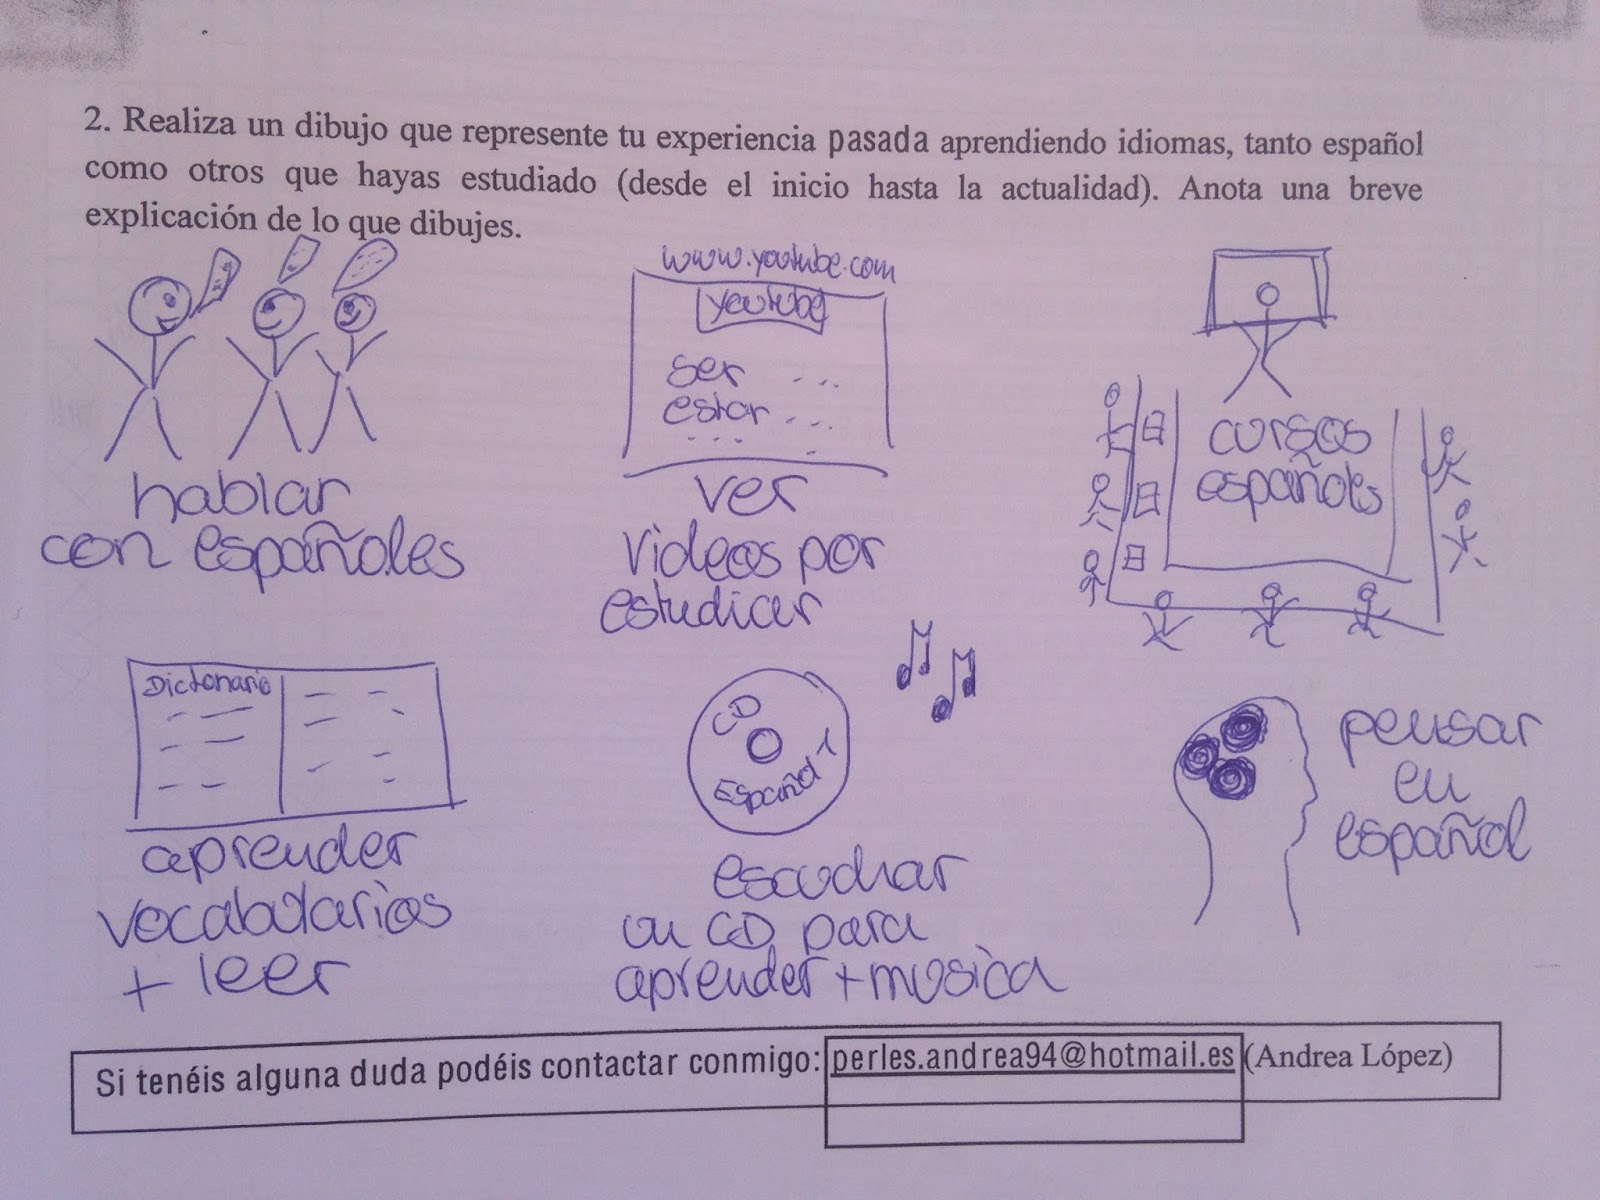 2. Realiza un dibujo que represente tu experiencia pasada aprendiendo idiomas, tanto español
como otros que hayas estudiado (desde el inicio hasta la actualidad). Anota una breve
explicación de lo que dibujes.
hablar
con españoles
www.youtube.com
youtube
ser ...
estar ...
ver
videos por
estudicar
cursos
españoles
Dictonario
aprender
vocabularios
+ leer
CD
Español 1
escuchar
un CD para
aprender + mosica
pensar
en
español
Si tenéis alguna duda podéis contactar conmigo: perles.andrea94@hotmail.es (Andrea López)